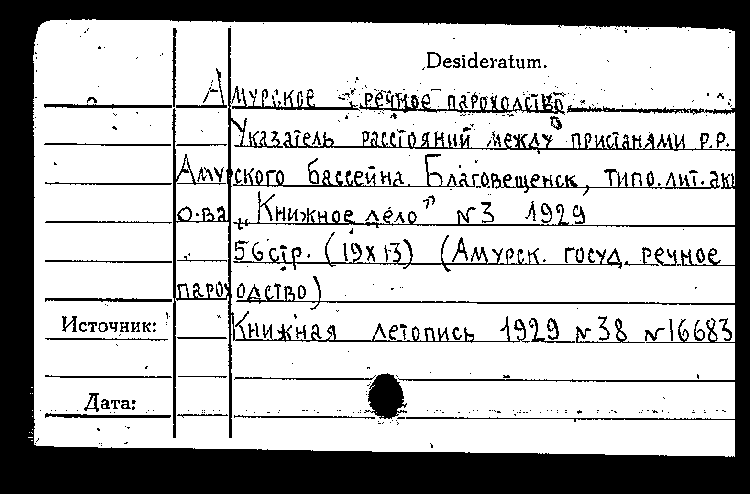 Desideratum.
Амурское речное пароходство
Указатель расстояний между пристанями р.р.
Амурского бассейна. Благовещенск, типо.лит.акц
о-ва „Книжное дело" №3 1929
56 стр. (19х13) (Амурск. госуд. речное
пароходство)
Источник: Книжная летопись 1929 №38 №16683
Дата: